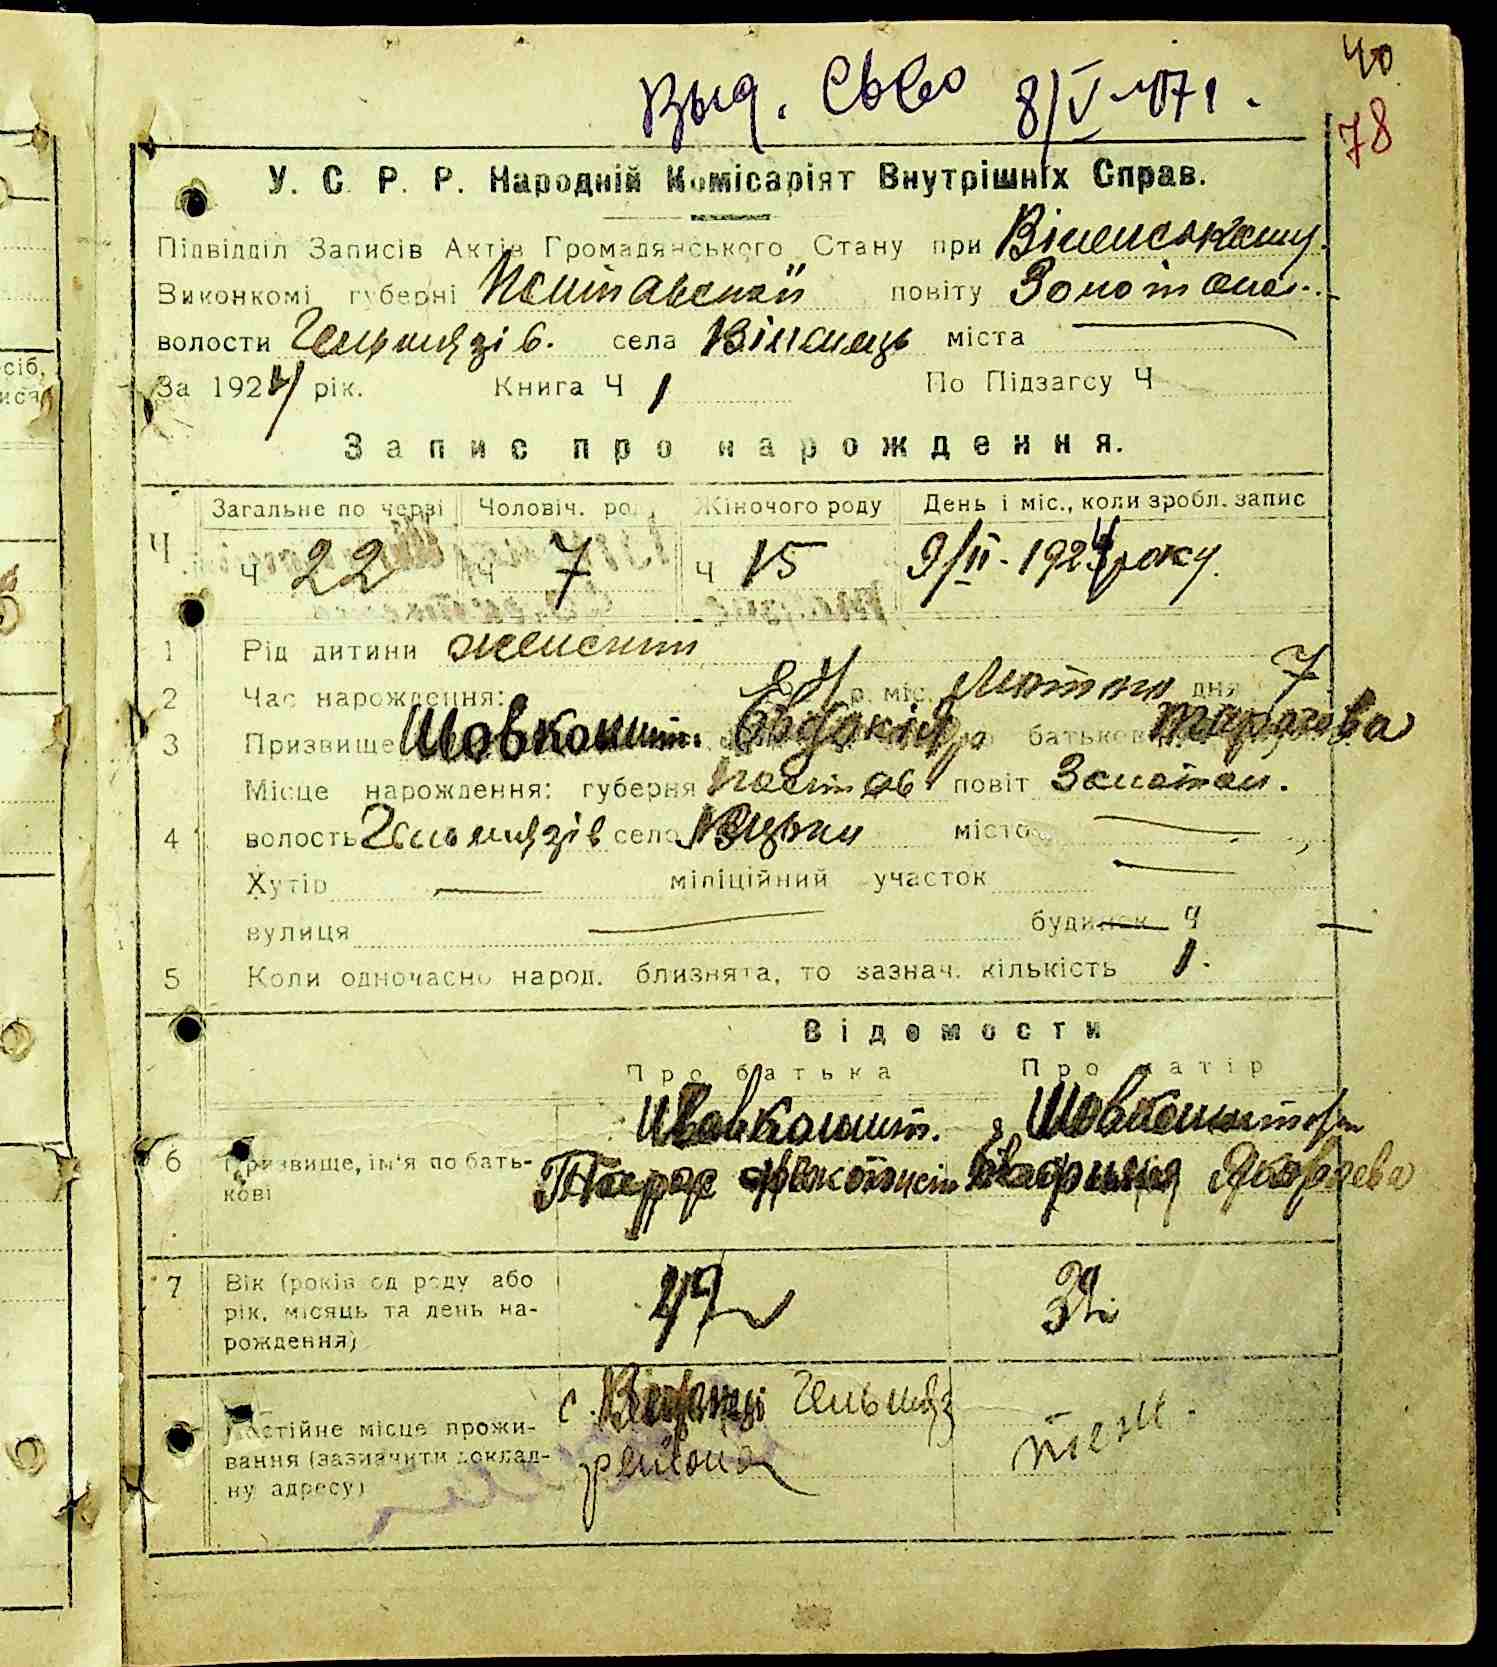 40
Выд. Св-во 8/V-1971.
78
У. С. Р. Р. Народній Комісаріят Внутрішніх Справ.
Підвідділ Записів Актів Громадянського Стану при
Виконкомі губерні Полтавської повіту Золотонос.
волости Гельмязів. села міста —
За 1924 рік. Книга Ч 1 По Підзагсу Ч
Запис про народження.
Ч. Загальне по черзі Чоловіч. роду Жіночого роду День і міс., коли зробл. запис
Ч 22 Ч 7 Ч 15 9/II-1924 року.
1 Рід дитини
2 Час народження: 24 р. міс. Лютого дня 7
3 Призвище Шовкопляс. Евдокія по батькові Тарасова
Місце народження: губерня Полтав. повіт Золотон.
4 волость Гельмязів село місто —
Хутір — міліційний участок —
вулиця — будинок Ч —
5 Коли одночасно народ. близнята, то зазнач. кількість 1.
Відомости
Про батька Про матір
6 Призвище, ім'я по бать-
кові
Тарас Яковлева
7 Вік (років од роду або
рік, місяць та день на-
рождення)
47 39
Постійне місце прожи-
вання (зазначити доклад-
ну адресу)
с. Гельмяз
района
теж.